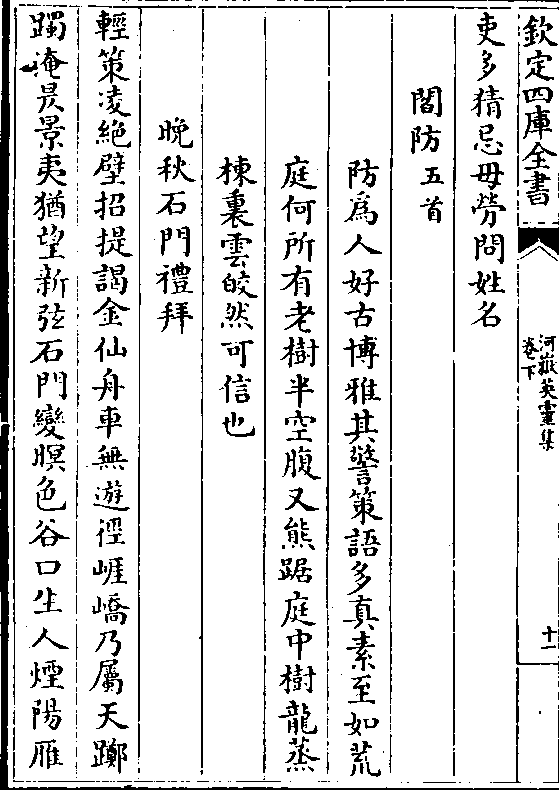 欽定四庫全書
河嶽英靈集
卷下
十一
吏多猜忌毋勞問姓名
閻防五首
防為人好古博雅其警策語多真素至如荒
庭何所有老樹半空腹又熊踞庭中樹龍蒸
棟裏雲皎然可信也
晚秋石門禮拜
輕策凌絶壁招提謁金仙舟車無遊徑崕嶠乃屬天躑
躅淹昃景夷猶望新弦石門變暝色谷口生人煙陽雁